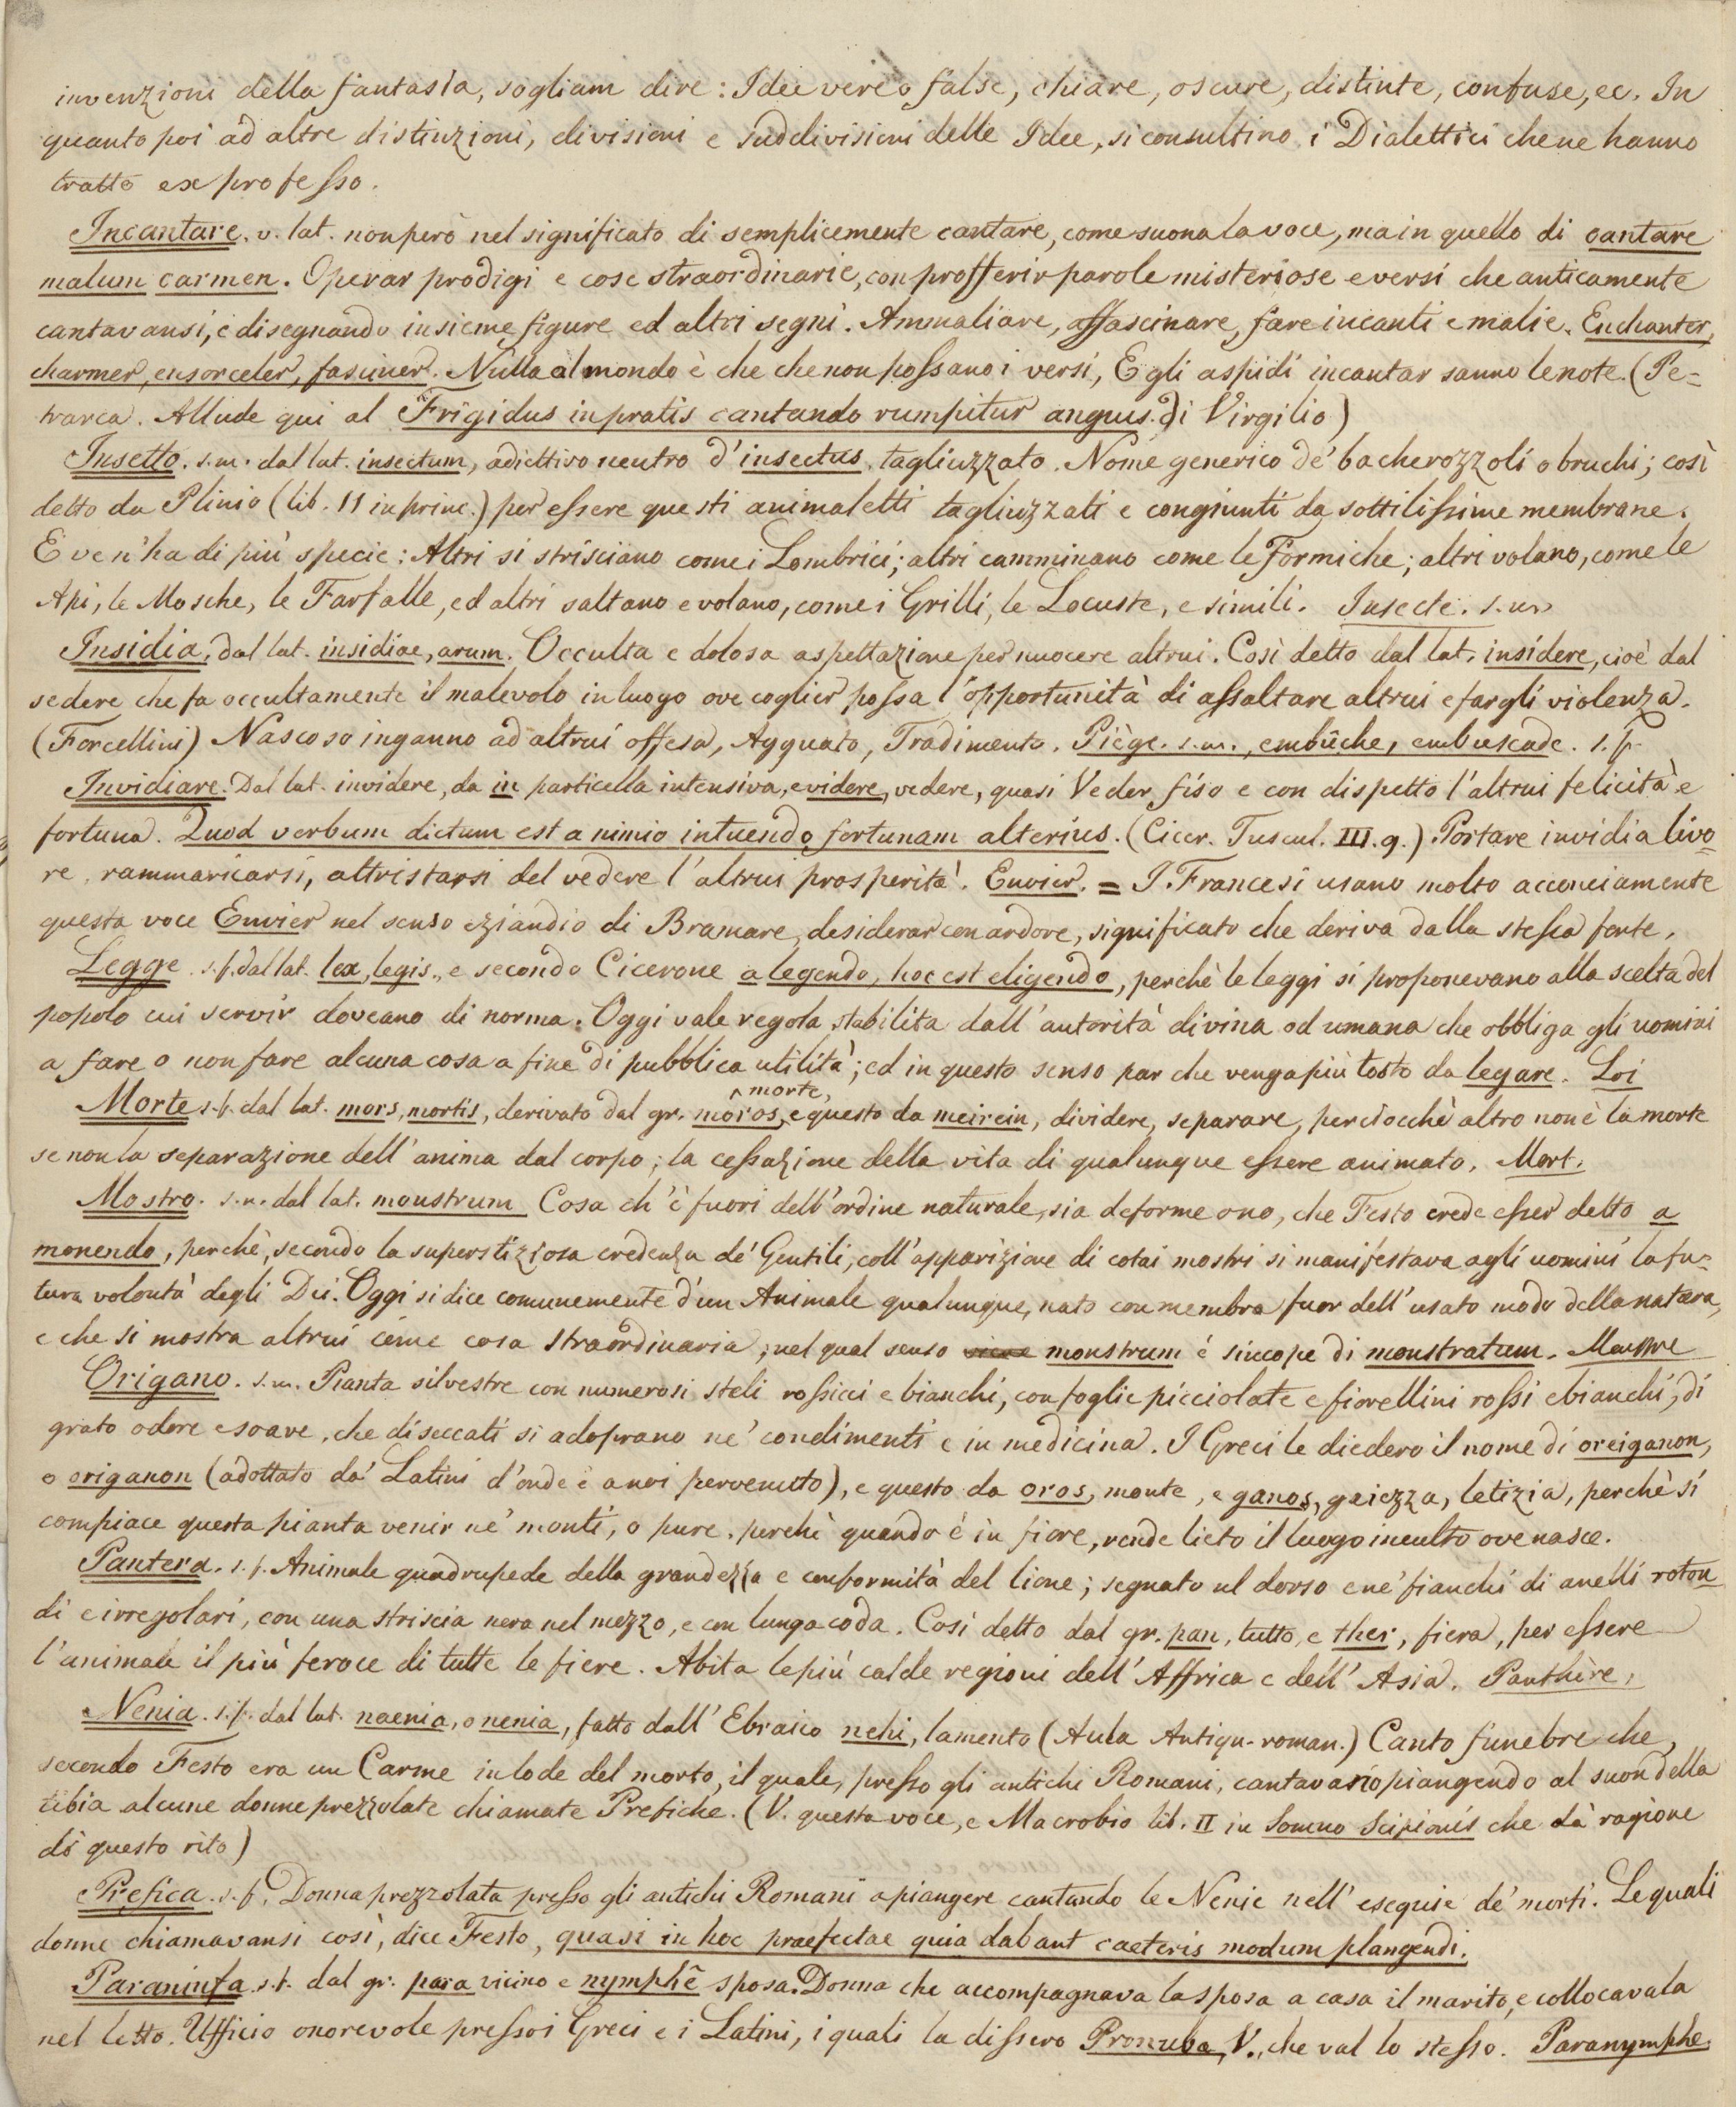 invenzioni della fantasia, sogliam dire: Idee vere o false, chiare, oscure, distinte, confuse, ec. In
quanto poi ad altre distinzioni, divisioni e suddivisioni delle Idee, si consultino i Dialettici che ne hanno
tratto ex professo.
Incantare. v. lat. non però nel significato di semplicemente cantare, come suona la voce, ma in quello di cantare
malum carmen. Operar prodigi e cose straordinarie, con profferir parole misteriose e versi che anticamente
cantavansi, e disegnando insieme figure ed altri segni. Ammaliare, affascinare, fare incanti e malie. Enchanter,
charmer, ensorceler, fasciner. Nulla al mondo è che che non possano i versi, E gli aspidi incantar sanno le note. (Pe=
trarca. Allude qui al Frigidus in pratis cantando rumpitur anguis di Virgilio)
Insetto. s.m. dal lat. insectum, adiettivo neutro d'insectus, tagliuzzato. Nome generico de' bacherozzoli o bruchi; così
detto da Plinio (lib. 11 in princ.) per essere questi animaletti tagliuzzati e congiunti da sottilissime membrane.
E ve n'ha di più specie: Altri si strisciano come i Lombrici; altri camminano come le Formiche; altri volano, come le
Api, le Mosche, le Farfalle, ed altri saltano e volano, come i Grilli, le Locuste, e simili. Insecte. s.m.
Insidia, dal lat. insidiae, arum. Occulta e dolosa aspettazione per nuocere altrui. Così detto dal lat. insidere, cioè dal
sedere che fa occultamente il malevolo in luogo ove coglier possa l'opportunità di assaltare altrui e fargli violenza.
(Forcellini) Nascoso inganno ad altrui offesa, Agguato, Tradimento. Piège. s.m., embûche, embuscade. s.f.
Invidiare. Dal lat. invidere, da in particella intensiva, e videre, vedere, quasi Veder fiso e con dispetto l'altrui felicità e
fortuna. Quod verbum dictum est a nimio intuendo fortunam alterius. (Cicer. Tuscul. III. 9.) Portare invidia livo=
re, rammaricarsi, attristarsi del vedere l'altrui prosperità. Envier. = I Francesi usano molto acconciamente
questa voce Envier nel senso eziandio di Bramare, desiderar con ardore, significato che deriva dalla stessa fonte.
Legge. s.f. dal lat. lex, legis., e secondo Cicerone a legendo, hoc est eligendo, perchè le leggi si proponevano alla scelta del
popolo cui servir doveano di norma. Oggi vale regola stabilita dall'autorità divina od umana che obbliga gli uomini
a fare o non fare alcuna cosa a fine di pubblica utilità; ed in questo senso par che venga più tosto da legare. Loi
Morte s.f. dal lat. mors, mortis, derivato dal gr. moros, morte, e questo da meirein, dividere, separare, perciocchè altro non è la morte
se non la separazione dell'anima dal corpo; la cessazione della vita di qualunque essere animato. Mort.
Mostro. s.m. dal lat. monstrum Cosa ch'è fuori dell'ordine naturale, sia deforme o no, che Festo crede esser detto a
monendo, perchè, secondo la superstiziosa credenza de' Gentili, coll'apparizione di cotai mostri si manifestava agli uomini la fu=
tura volontà degli Dei. Oggi si dice comunemente d'un Animale qualunque, nato con membra fuor dell'usato modo della natura,
e che si mostra altrui come cosa straordinaria; nel qual senso viene monstrum è sincope di monstratum. Monstre
Origano. s.m. Pianta silvestre con numerosi steli rossicci e bianchi, con foglie picciolate e fiorellini rossi e bianchi, di
grato odore e soave, che diseccati si adoprano ne' condimenti e in medicina. I Greci le diedero il nome di oreiganon,
o origanon (adottato da' Latini d'onde è a noi pervenuto), e questo da oros, monte, e ganos, gaiezza, letizia, perchè si
compiace questa pianta venir ne' monti, o pure, perchè quando è in fiore, rende lieto il luogo incolto ove nasce.
Pantera. s.f. Animale quadrupede della grandezza e conformità del lione; segnato ul dorso e ne' fianchi di anelli roton
di e irregolari, con una striscia nera nel mezzo, e con lunga coda. Così detto dal gr. pan, tutto, e ther, fiera, per essere
l'animale il più feroce di tutte le fiere. Abita le più calde regioni dell'Affrica e dell'Asia. Panthère.
Nenia. s.f. dal lat. naenia, o nenia, fatto dall'Ebraico nehi, lamento (Aula Antiqu. roman.) Canto funebre che,
secondo Festo era un Carme in lode del morto, il quale, presso gli antichi Romani, cantavano piangendo al suon della
tibia alcune donne prezzolate chiamate Prefiche. (V. questa voce, e Macrobio lib. II in Somno Scipionis che dà ragione
di questo rito)
Prefica. s.f. Donna prezzolata presso gli antichi Romani a piangere cantando le Nenie nell'esequie de' morti. Le quali
donne chiamavansi così, dice Festo, quasi in hoc praefectae quia dabant caeteris modum plangendi.
Paraninfa. s.f. dal gr. para vicino e nymphê sposa. Donna che accompagnava la sposa a casa il marito, e collocavala
nel letto. Ufficio onorevole presso i Greci e i Latini, i quali la dissero Pronuba, V., che val lo stesso. Paranymphe.